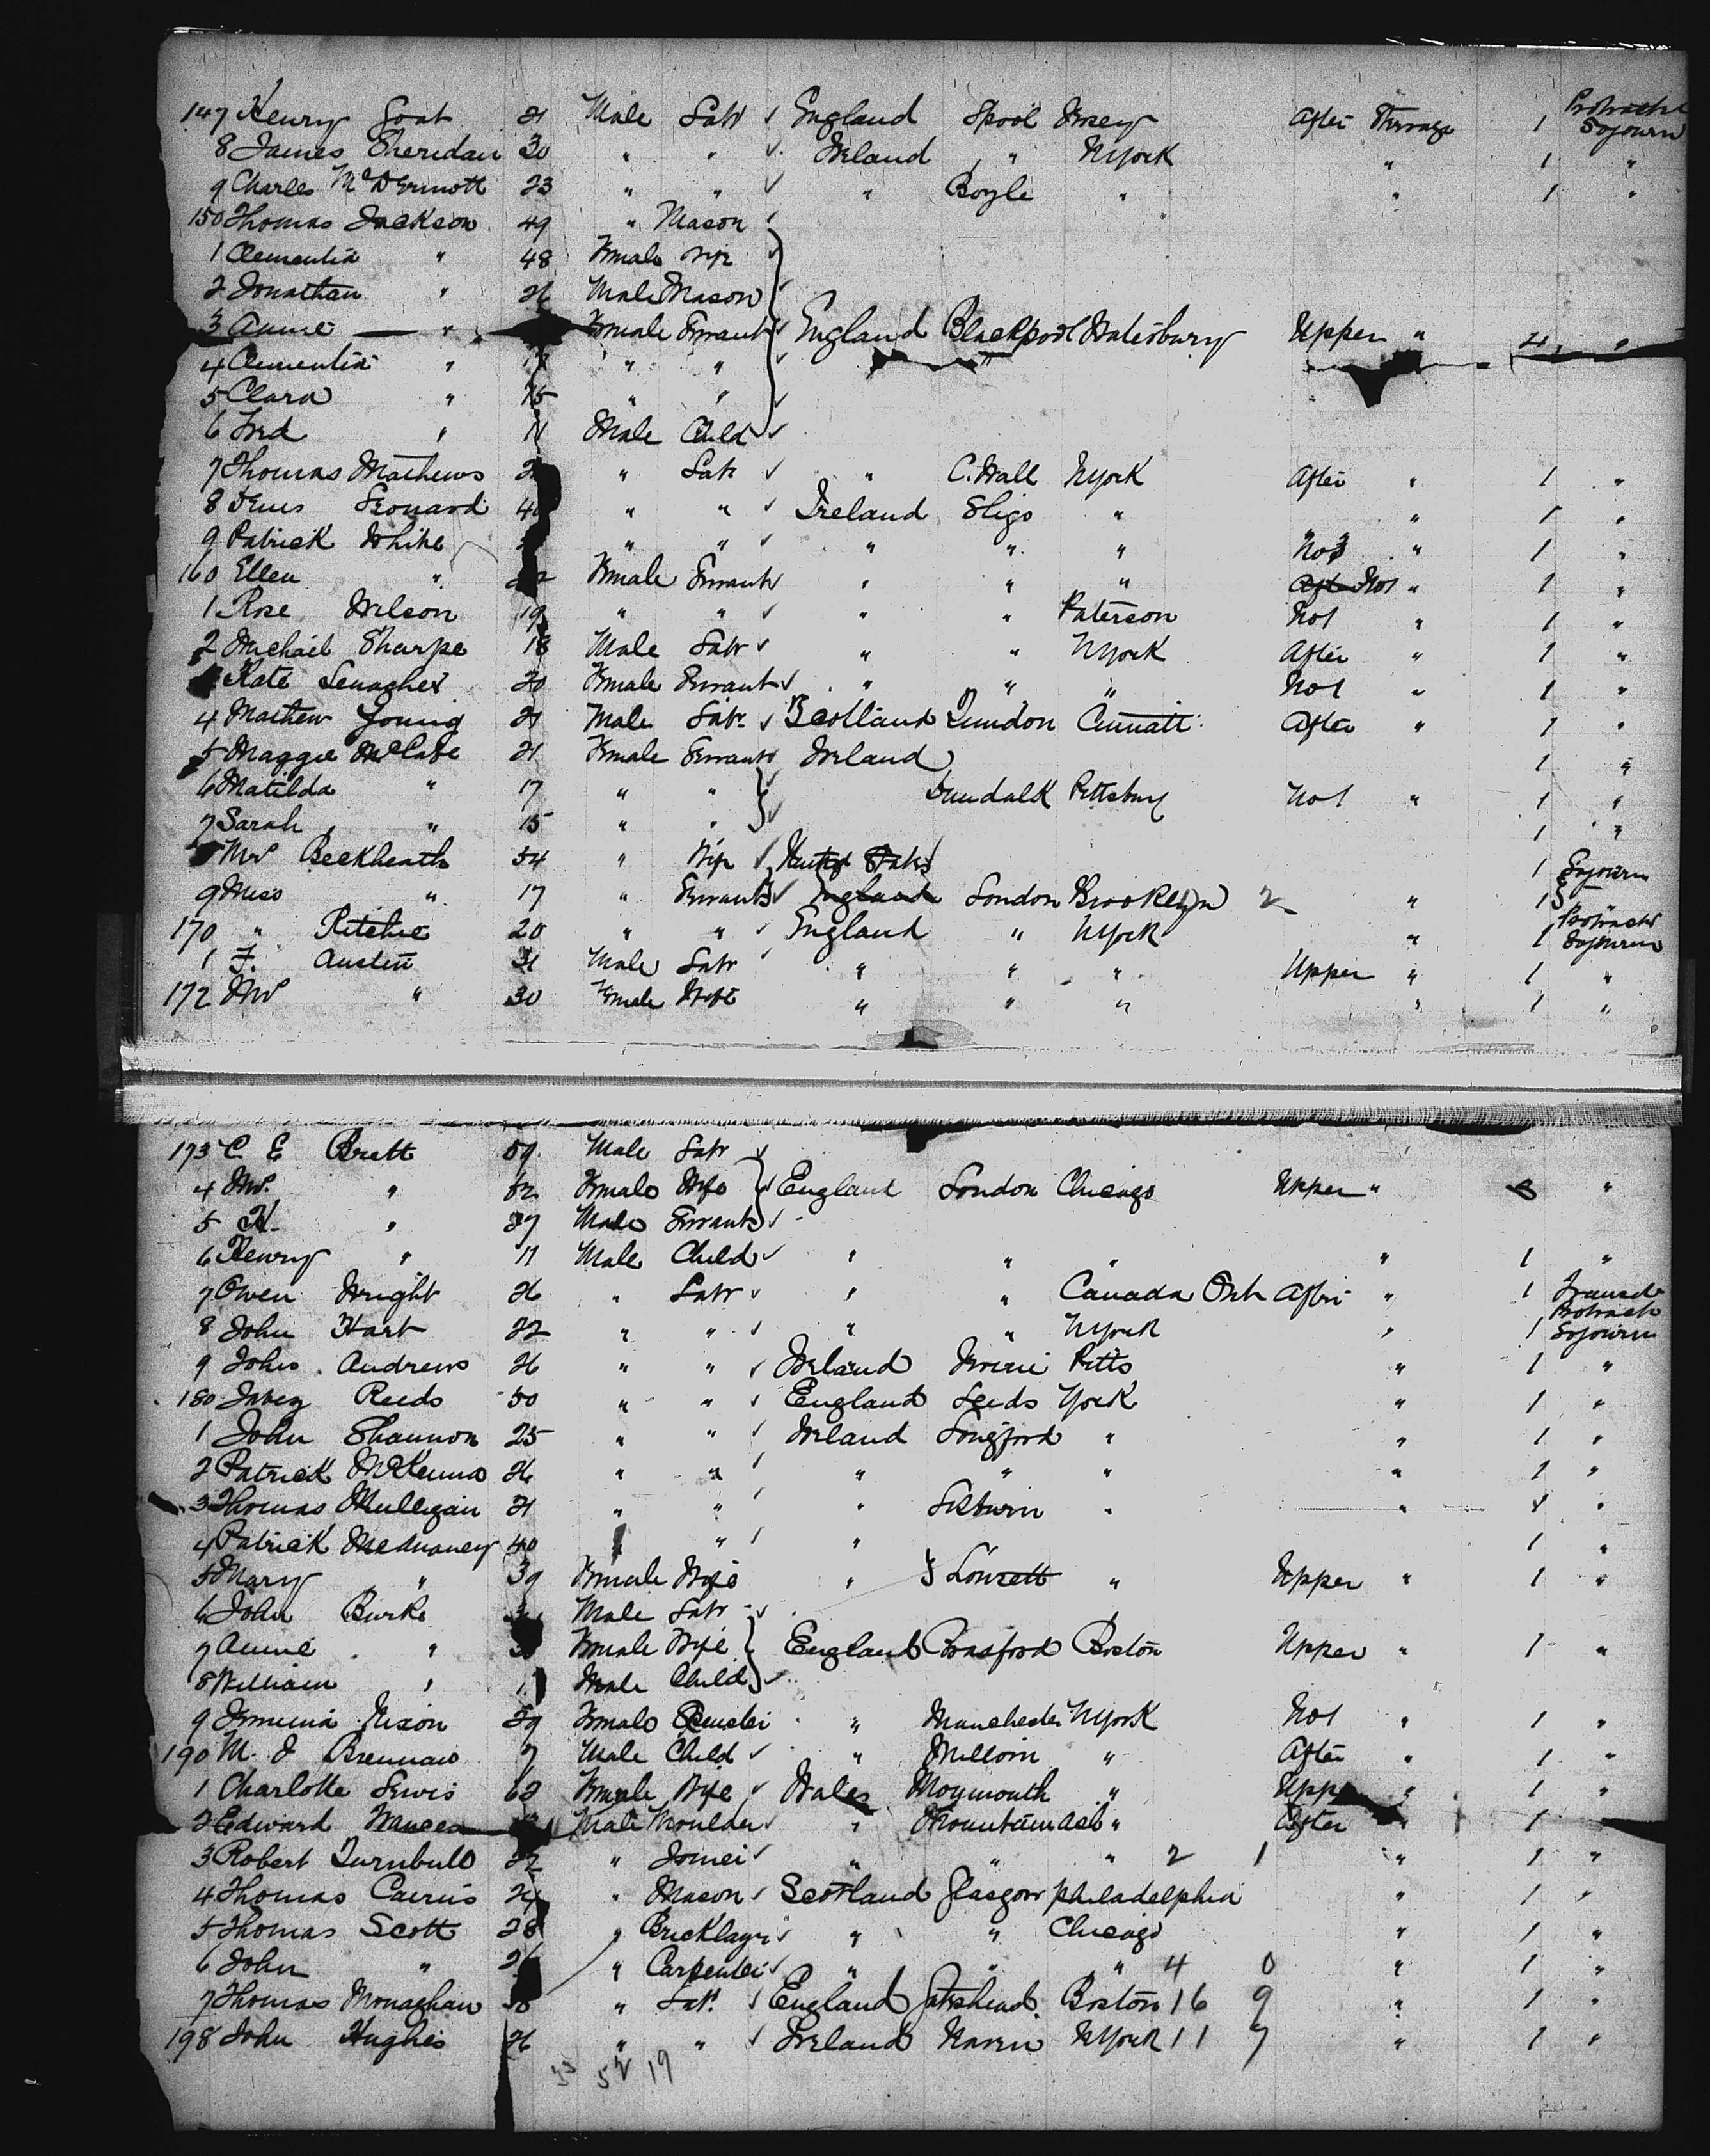 147 Henry Goat 21 Male Labr England Lpool Jersey After Steerage 1 Protracted Sojourn
8 James Sheridan 30 " " Ireland " NYork " 1 "
9 Charles McDermott 23 " " " Boyle " " 1 "
150 Thomas Jackson 49 " Mason
1 Clementia " 48 Female Wife
2 Jonathan " 21 Male Mason
3 Annie " Female Servant England Blackpool Waterbury Upper " 4 "
4 Clementia " " "
5 Clara " 15 " "
6 Fred " 11 Male Child
7 Thomas Mathews " Labr " C. Wall NYork After " 1 "
8 Denis Leonard " " Ireland Sligo " " 1 "
9 Patrick White " " " " " No3 " 1 "
160 Ellen " Female Servant " " " No1 " 1 "
1 Rose Wilson 19 " " " " Paterson No1 " 1 "
2 Michael Sharpe 18 Male Labr " " NYork After " 1 "
Kate 20 Female Servant " " " No1 " 1 "
4 Mathew Young 21 Male Labr Scotland Dundon Cinnatti After " 1 "
5 Maggie McCabe 21 Female Servant Ireland 1 "
6 Matilda " 17 " " Dundalk Pittsburg No1 " 1 "
7 Sarah " 15 " " 1 "
Mrs Beckheath 54 " Wife United States 1 Sojourn
9 Miss " 17 " Servant England London Brooklyn 2 " 1
170 " Ritchie 20 " " England " NYork " 1 Protracted Sojourn
1 F. Austin 31 Male Labr " " " Upper " 1 "
172 Mrs " 30 Female Wife " " " " 1 "
173 C E Brett 59 Male Labr
4 Mrs. " 52 Female Wife England London Chicago Upper " 3 "
5 H. " 27 Male Servant
6 Henry " 11 Male Child " " " " 1 "
7 Owen Wright 26 " Labr " " Canada Ont After " 1 Transit
8 John Hart 22 " " " " NYork " 1 Protracted Sojourn
9 John Andrews 26 " " Ireland Pitts " 1 "
180 Jabez Reeds 50 " " England Leeds York " 1 "
1 John Shannon 25 " " Ireland Longford " " 1 "
2 Patrick McKenna 26 " " " " " " 1 "
3 Thomas Mulligan 21 " " " Lisburn " " 1 "
4 Patrick 40 " " 1 "
5 Mary " 39 Female Wife " " Upper " 1 "
6 John Burke Male Labr
7 Annie " Female Wife England Bradford Boston Upper " 1 "
8 William " Male Child
9 Jemima Nixon 29 Female Spinster " Manchester NYork No1 " 1 "
190 M. J Brennan 7 Male Child " Millom " After " 1 "
1 Charlotte Lewis 62 Female Wife Wales Monmouth " Upper " 1 "
2 Edward Male Moulder " Mountain Ash " After " 1
3 Robert Turnbull 22 " Joiner " " " 2 1 " 1 "
4 Thomas Cairns 24 " Mason Scotland Glasgow philadelphia " 1 "
5 Thomas Scott 28 " Bricklayer " " Chicago " 1 "
6 John " " Carpenter " " " 4 0 " 1 "
7 Thomas Monaghan " Labr England Gateshead Boston 16 9 " 1 "
198 John Hughes 26 " " Ireland Naven NYork 11 7 " 1 "
52 19